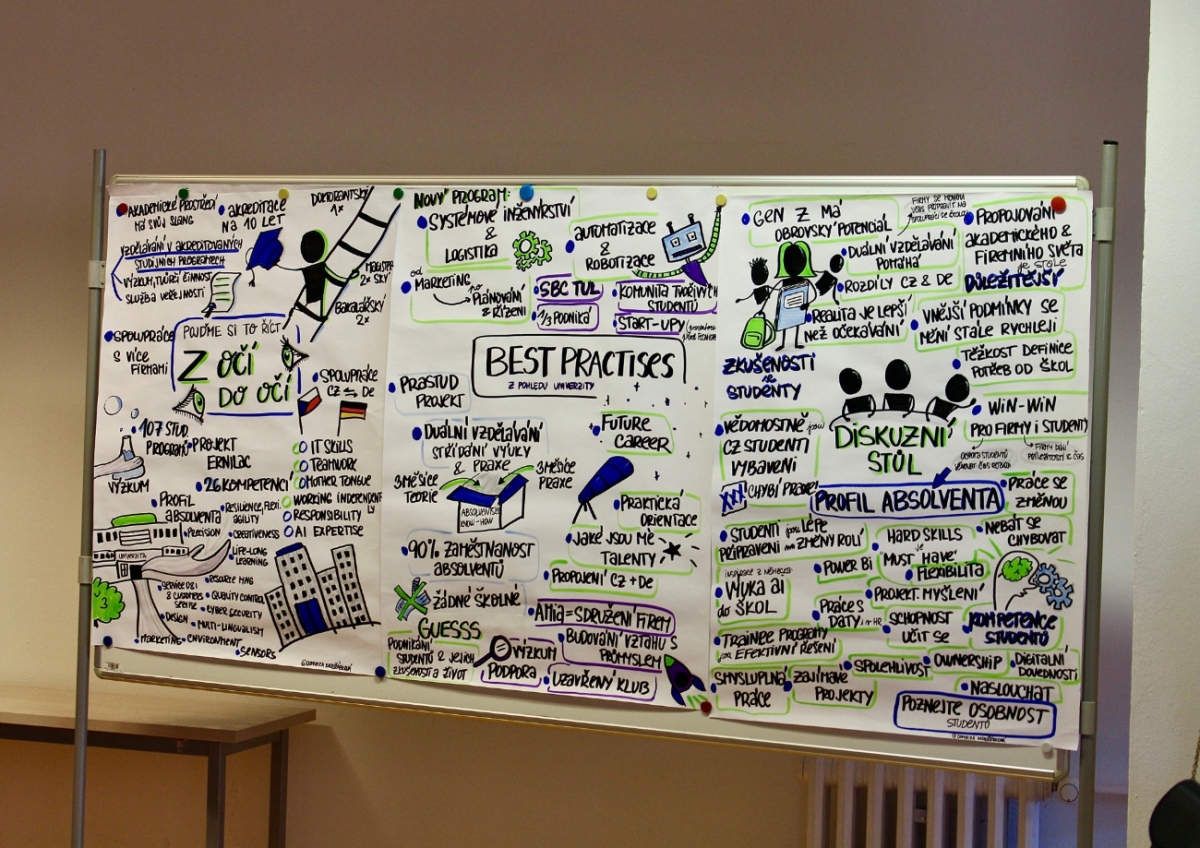 AKADEMICKÉ PROSTŘEDÍ
MÁ SVŮJ SLANG
AKREDITACE
NA 10 LET
DOKTORANTSKÝ
1x
VZDĚLÁVÁNÍ V AKREDITOVANÝCH
STUDIJNÍCH PROGRAMECH
VÝZKUM, TVŮRČÍ ČINNOST
SLUŽBA VEŘEJNOSTI
MAGISTER
SKÝ
2x
BAKALÁŘSKÝ
2x
SPOLUPRÁCE
S VÍCE
FIRMAMI
POJĎME SI TO ŘÍCT
Z OČÍ
DO OČÍ
SPOLUPRÁCE
CZ DE
107 STUD.
PROGRAMŮ
VÝZKUM
PROJEKT
ERNILAC
26 KOMPETENCÍ
IT SKILLS
TEAMWORK
MOTHER TONGUE
WORKING INDEPENDENT
LY
RESPONSIBILITY
AI EXPERTISE
PROFIL
ABSOLVENTA
PRECISION
RESILIENCE, FLEXI.
AGILITY
CREATIVENESS
LIFE-LONG
LEARNING
UNIVERZITA
SERVICE DES.
& CUSTOMERS
SERVISE
RESOURCE MNG
QUALITY CONTROL
CYBER SECURITY
DESIGN
MULTI-LINGUALISM
MARKETING
ENVIRONMENT
SENSORS
3
NOVÝ PROGRAM:
SYSTÉMOVÉ INŽENÝRSTVÍ
&
LOGISTIKA
AUTOMATIZACE
&
ROBOTIZACE
OD
MARKETING
PO
PLÁNOVÁNÍ
& ŘÍZENÍ
SBC TUL
1/3 PODNIKÁ
KOMUNITA TVOŘIVÝCH
STUDENTŮ
START-UPY
BEST PRACTISES
Z POHLEDU UNIVERZITY
PRASTUD
PROJEKT
DUÁLNÍ VZDĚLÁVÁNÍ
STŘÍDÁNÍ VÝUKY
& PRAXE
3 MĚSÍCE
TEORIE
3 MĚSÍCE
PRAXE
ABSOLVENT SE
KNOW-HOW
FUTURE
CAREER
PRAKTICKÁ
ORIENTACE
90% ZAMĚSTNANOST
ABSOLVENTŮ
JAKÉ JSOU MÉ
TALENTY
PROPOJENÍ CZ + DE
ŽÁDNÉ ŠKOLNÉ
AMIA = SDRUŽENÍ FIREM
GUESSS
PODNIKÁNÍ
STUDENTŮ & JEJICH
ZKUŠENOST A ŽIVOT
VÝZKUM
PODPORA
BUDOVÁNÍ VZTAHU S
PRŮMYSLEM
UZAVŘENÝ KLUB
GEN Z MÁ
OBROVSKÝ POTENCIÁL
DUÁLNÍ VZDĚLÁVÁNÍ
POMÁHÁ
ROZDÍLY CZ & DE
PROPOJOVÁNÍ
AKADEMICKÉHO &
FIREMNÍHO SVĚTA
JE STÁLE
DŮLEŽITĚJŠÍ
REALITA JE LEPŠÍ
NEŽ OČEKÁVÁNÍ
VNĚJŠÍ PODMÍNKY SE
MĚNÍ STÁLE RYCHLEJI
ZKUŠENOSTI
SE
STUDENTY
TĚŽKOST DEFINICE
POTŘEB OD ŠKOL
WIN-WIN
PRO FIRMY I STUDENTY
VĚDOMOSTNĚ JSOU
CZ STUDENTI
VYBAVENI
DISKUZNÍ
STŮL
CHYBÍ PRAXE!
PROFIL ABSOLVENTA
PRÁCE SE
ZMĚNOU
STUDENTI JSOU LÉPE
PŘIPRAVENI NA ZMĚNY ROLÍ
HARD SKILLS
JE
MUST HAVE
NEBÁT SE
CHYBOVAT
POWER BI
FLEXIBILITA
INSPIRACE Z NĚMECKA
VÝUKA AI
DO ŠKOL
PROJEKT. MYŠLENÍ
PRÁCE S
DATY I V HR
SCHOPNOST
UČIT SE
KOMPETENCE
STUDENTŮ
TRAINEE PROGRAMY
JSOU EFEKTIVNÍ ŘEŠENÍ
SPOLEHLIVOST
OWNERSHIP
DIGITÁLNÍ
DOVEDNOSTI
SMYSLUPLNÁ
PRÁCE
ZAJÍMAVÉ
PROJEKTY
NASLOUCHAT
POZNEJTE OSOBNOST
STUDENTŮ